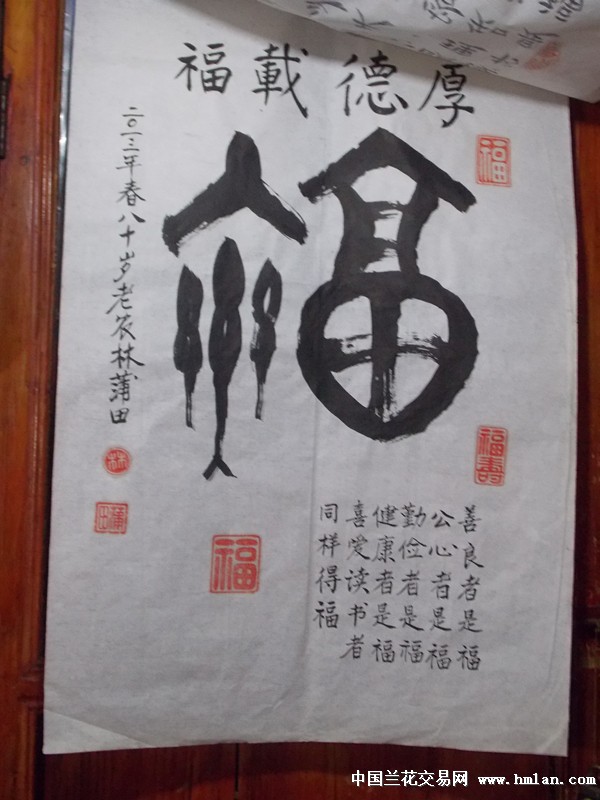 厚德載福
福
善良者是福
公心者是福
勤俭者是福
健康者是福
喜爱读书者
同样得福
二〇一三年春八十岁老农林蒲田
福
福壽
福
林
蒲田
中国兰花交易网 www.hmlan.com